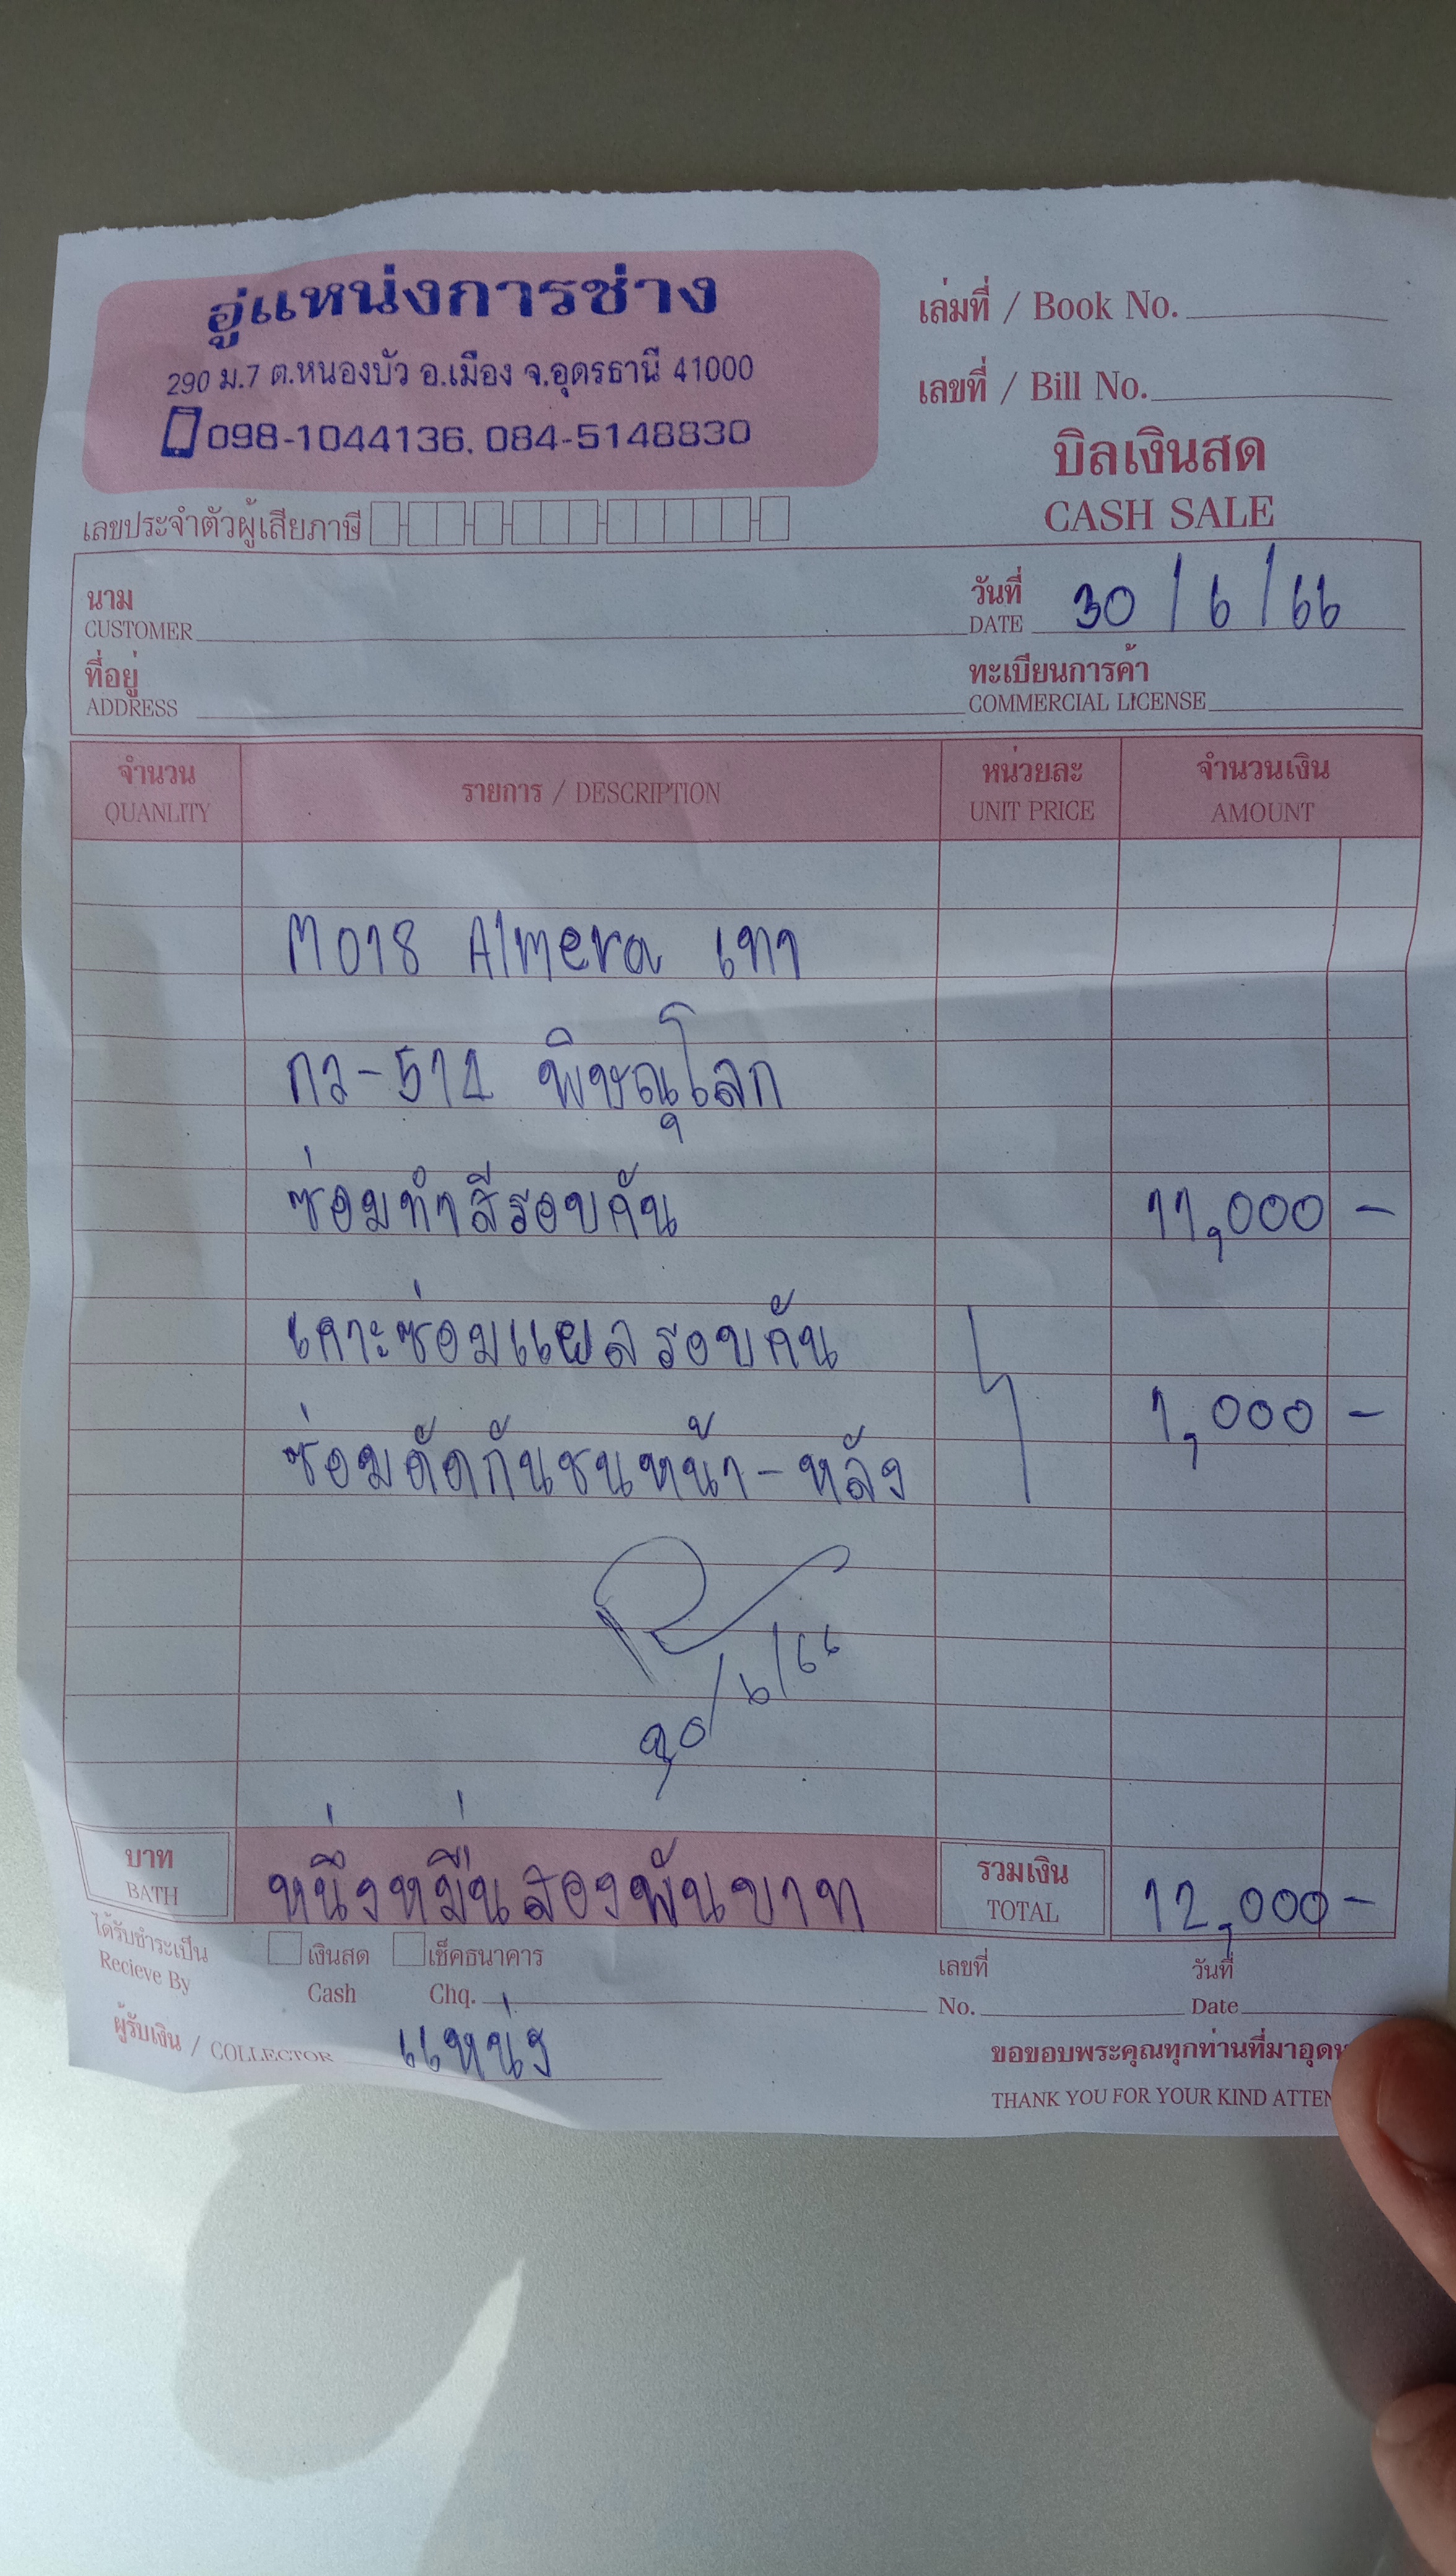 อู่แหน่งการช่าง
290 ม.7 ต.หนองบัว อ.เมือง จ.อุดรธานี 41000
098-1044136, 084-5148830
เล่มที่ / Book No.
เลขที่ / Bill No.
บิลเงินสด
CASH SALE
เลขประจำตัวผู้เสียภาษี
นาม
CUSTOMER
วันที่
DATE 30/6/66
ที่อยู่
ADDRESS
ทะเบียนการค้า
COMMERCIAL LICENSE
จำนวน รายการ / DESCRIPTION หน่วยละ จำนวนเงิน
QUANLITY UNIT PRICE AMOUNT
M018 Almera เทา
กว-514 พิษณุโลก
ซ่อมทำสีรอบคัน 11,000 -
เคาะซ่อมแผลรอบคัน
1,000 -
ซ่อมดัดกันชนหน้า-หลัง
30/6/66
บาท
BATH
หนึ่งหมื่นสองพันบาท
รวมเงิน
TOTAL
12,000 -
ได้รับชำระเป็น เงินสด เช็คธนาคาร เลขที่ วันที่
Recieve By Cash Chq. No. Date
ผู้รับเงิน / COLLECTOR แหน่ง
ขอขอบพระคุณทุกท่านที่มาอุด
THANK YOU FOR YOUR KIND ATTEN